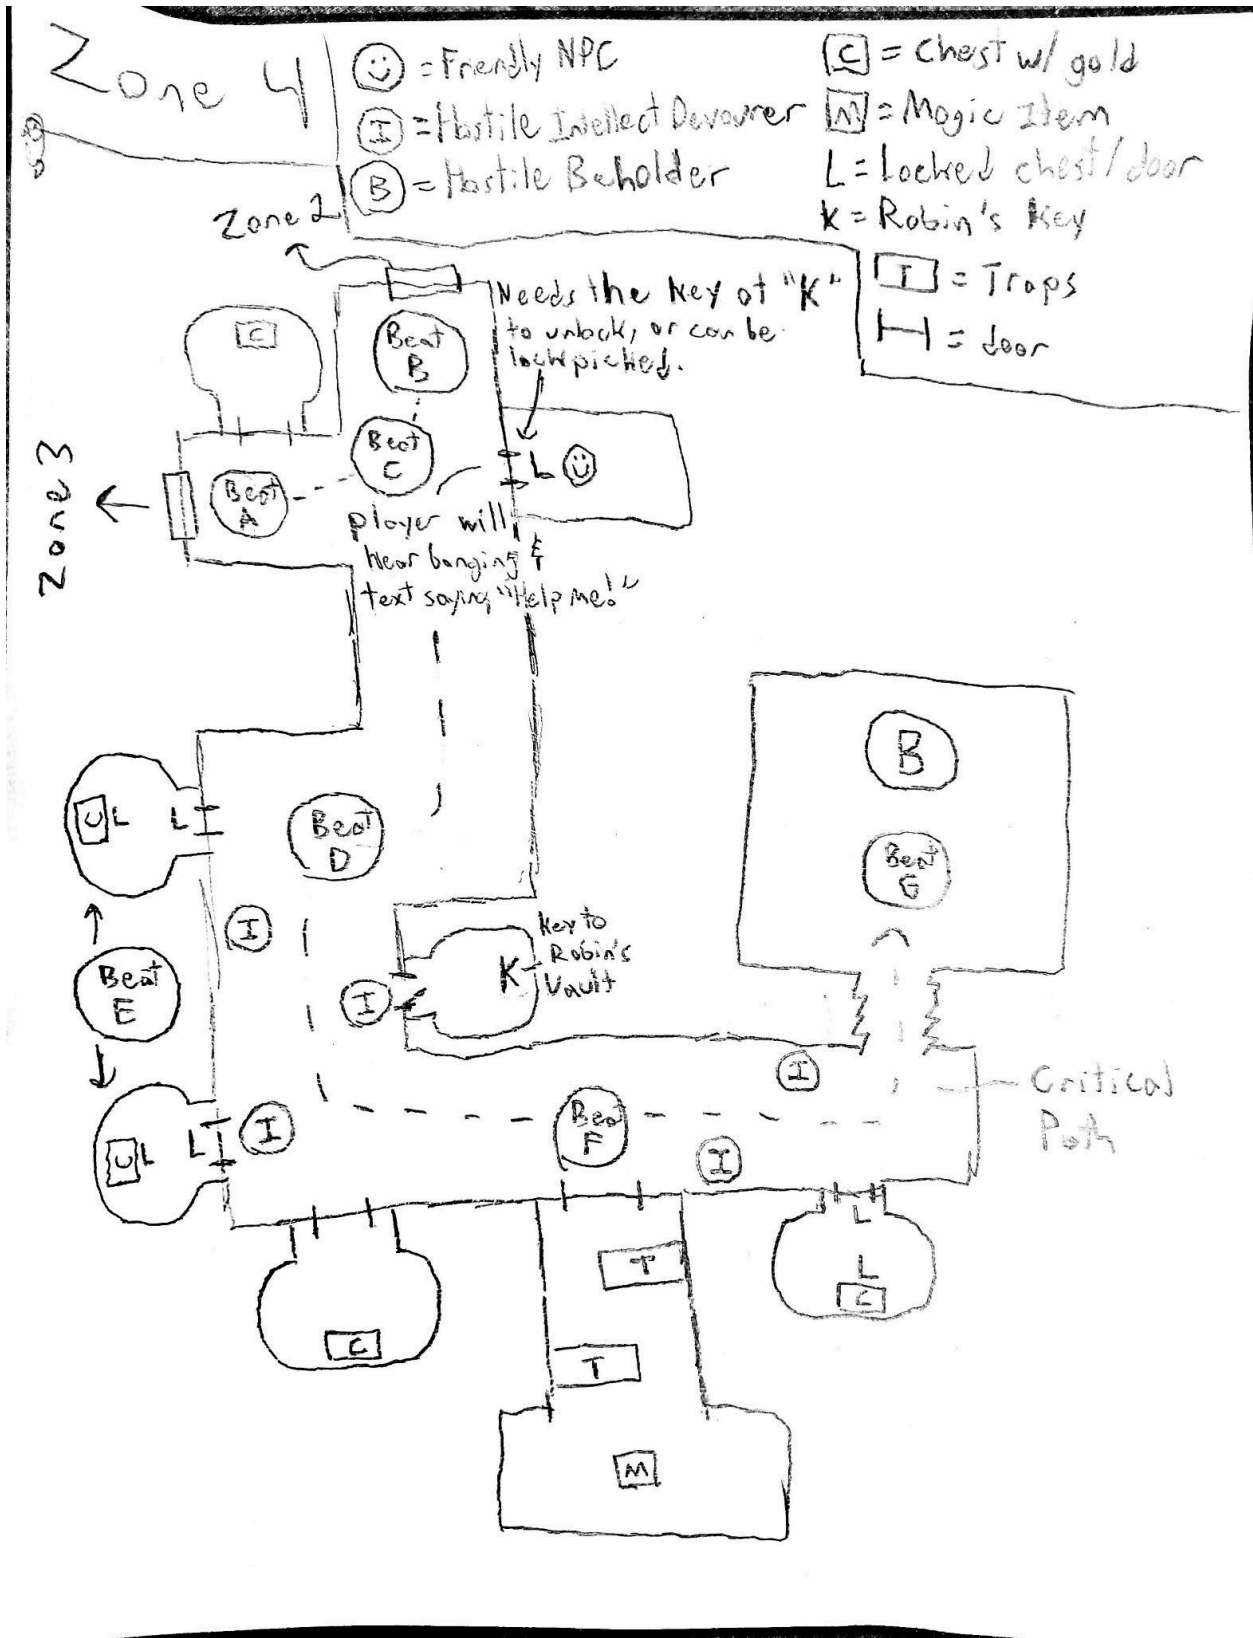 Zone 4
☺ = Friendly NPC
I = Hostile Intellect Devourer
B = Hostile Beholder
C = Chest w/ gold
M = Magic Item
L = Locked chest/door
K = Robin's Key
T = Traps
= door
Zone 2
Needs the key at "K"
to unlock, or can be
lockpicked.
C
Beat
B
Beat
C
Beat
A
L
Zone 3
player will
hear banging &
text saying "Help me!"
B
Beat
G
C L
L
Beat
D
I
Beat
E
I
K
Key to
Robin's
Vault
I
Critical
Path
C L
L
I
Beat
F
I
L
L
C
T
C
T
M